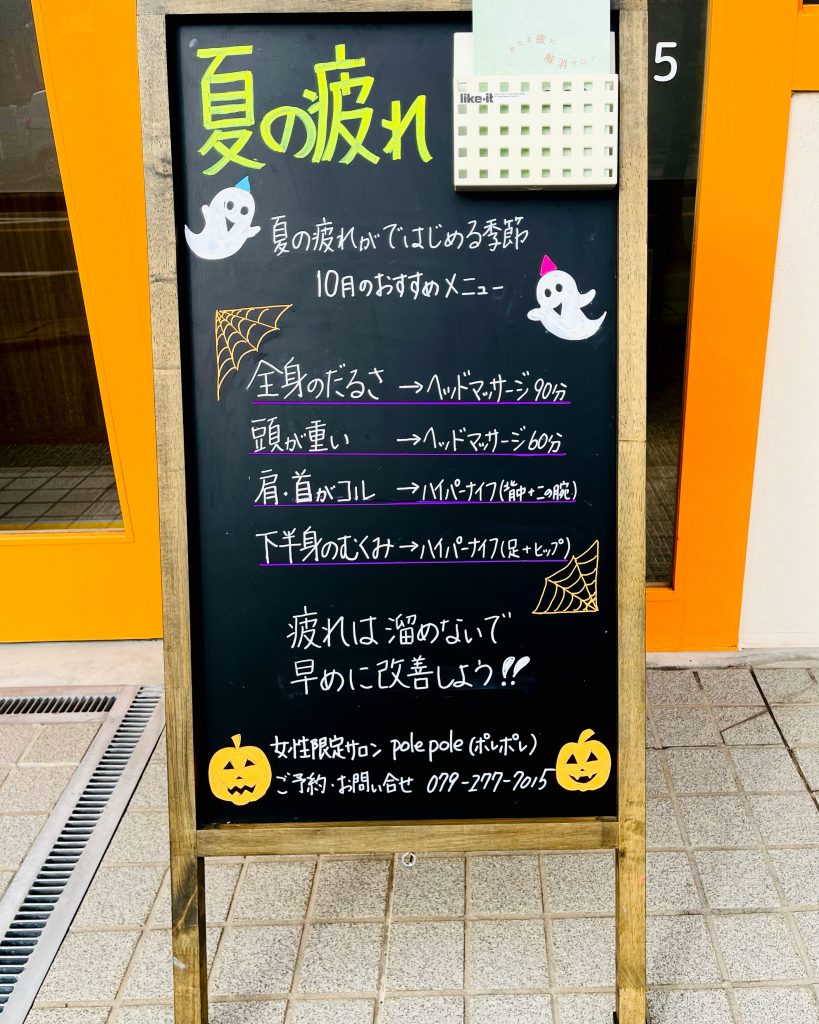 夏の疲れ
あたま疲れ
解消サロン
like-it
5
夏の疲れがではじめる季節
10月のおすすめメニュー
全身のだるさ →ヘッドマッサージ90分
頭が重い →ヘッドマッサージ60分
肩・首がコル →ハイパーナイフ(背中+二の腕)
下半身のむくみ→ハイパーナイフ(足+ヒップ)
疲れは溜めないで
早めに改善しよう!!
女性限定サロン pole pole (ポレポレ)
ご予約・お問い合せ 079-277-7015